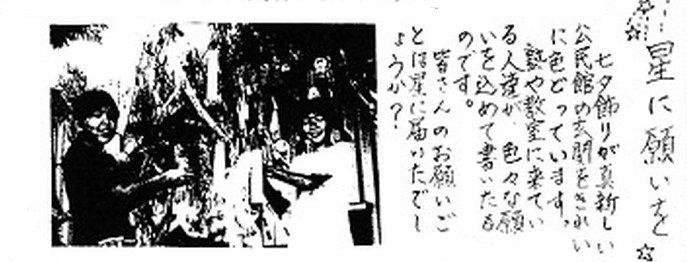 星に願いを
七夕飾りが真新しい
公民館の玄関をきれい
に色どっています。
塾や教室に来てい
る人達が、色々な願
いを込めて書いたも
のです。
皆さんのお願いご
とは星に届いたでし
ょうか?